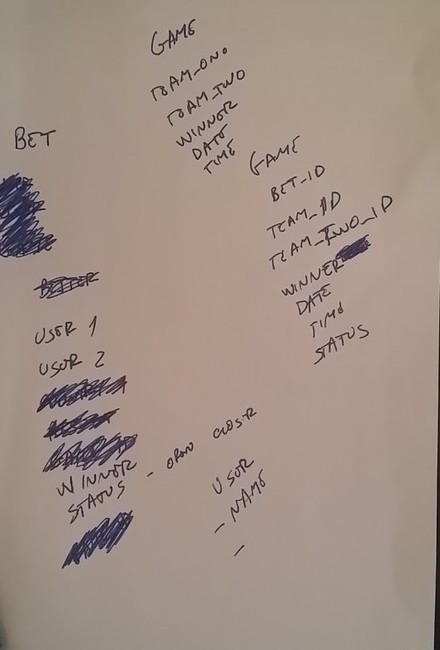 GAME
TEAM_ONE
TEAM_TWO
WINNER
DATE
TIME
BET
USER 1
USER 2
WINNER
STATUS - OPEN CLOSE
GAME
BET_ID
TEAM_ID
TEAM_TWO_ID
WINNER
DATE
TIME
STATUS
USER
- NAME
-